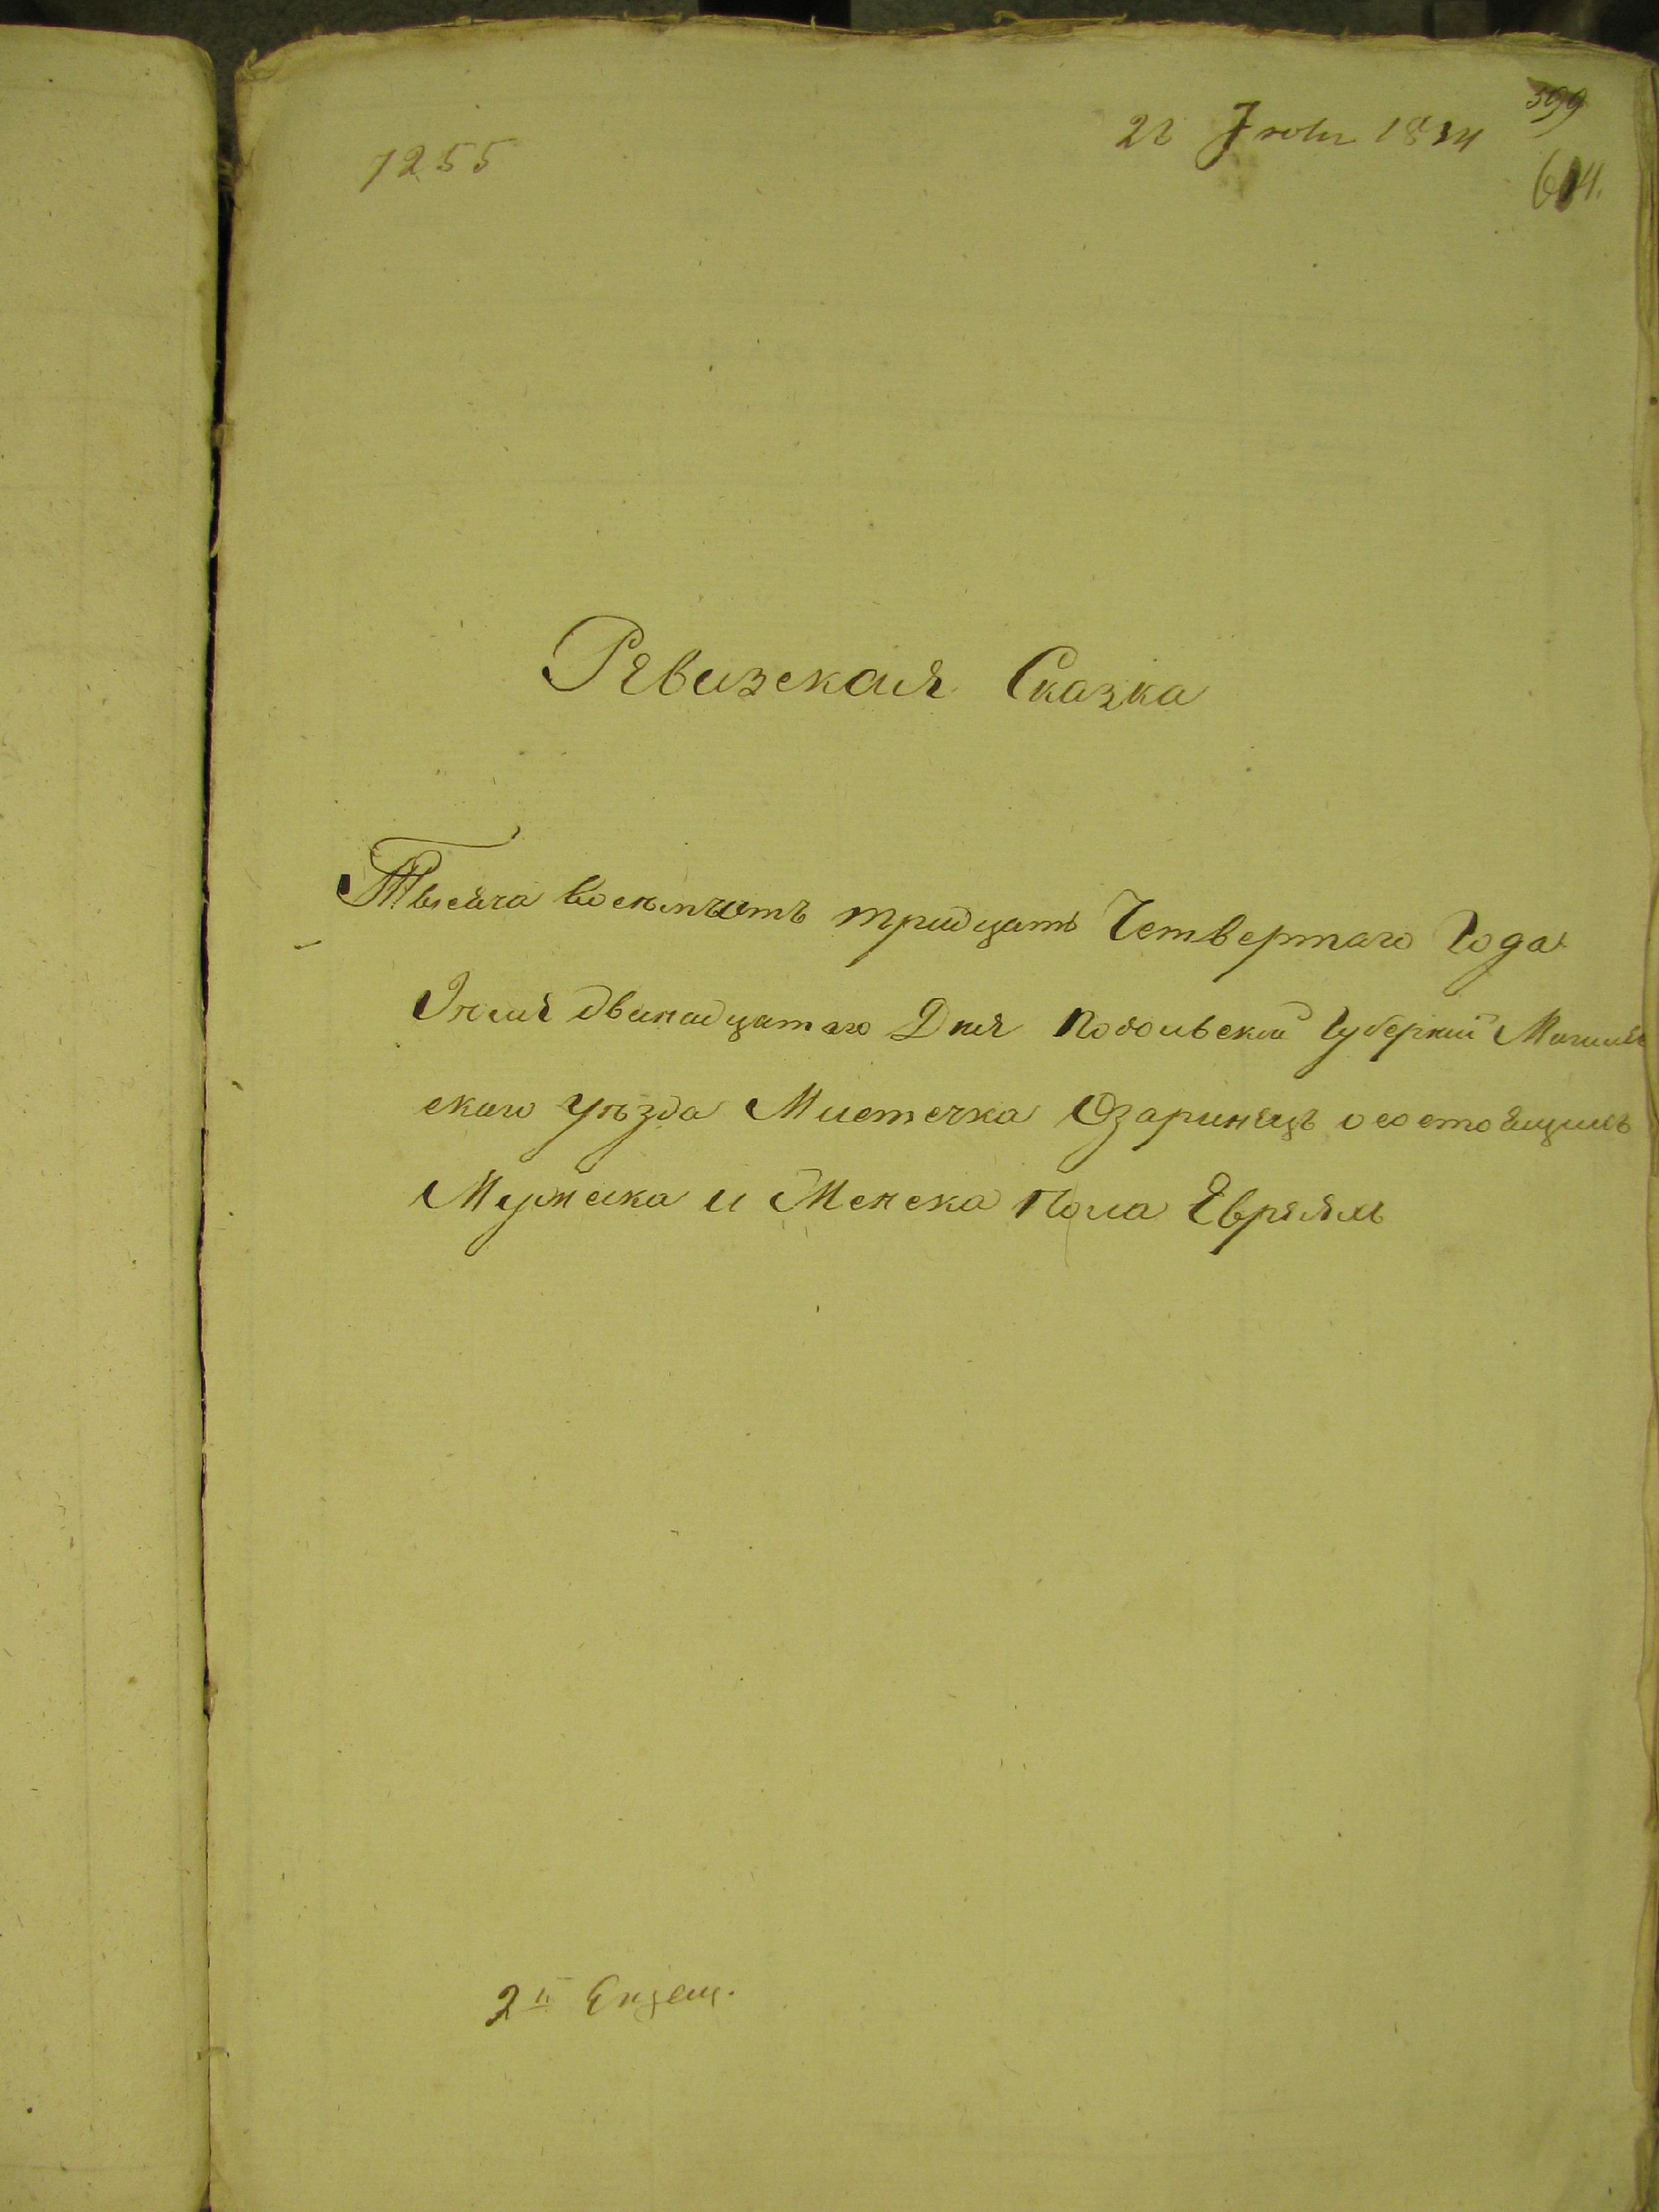 399
22 Июля 1834
1255
614.
Ревизская Сказка
Тысяча восемьсотъ тридцать Четвертаго Года
Июля дванадцатаго Дня Подольской Губернии Могилев
скаго уѣзда Мистечка Озаринецъ о состоящихъ
Мужеска и Женска Пола Евреяхъ
2й Екзем.